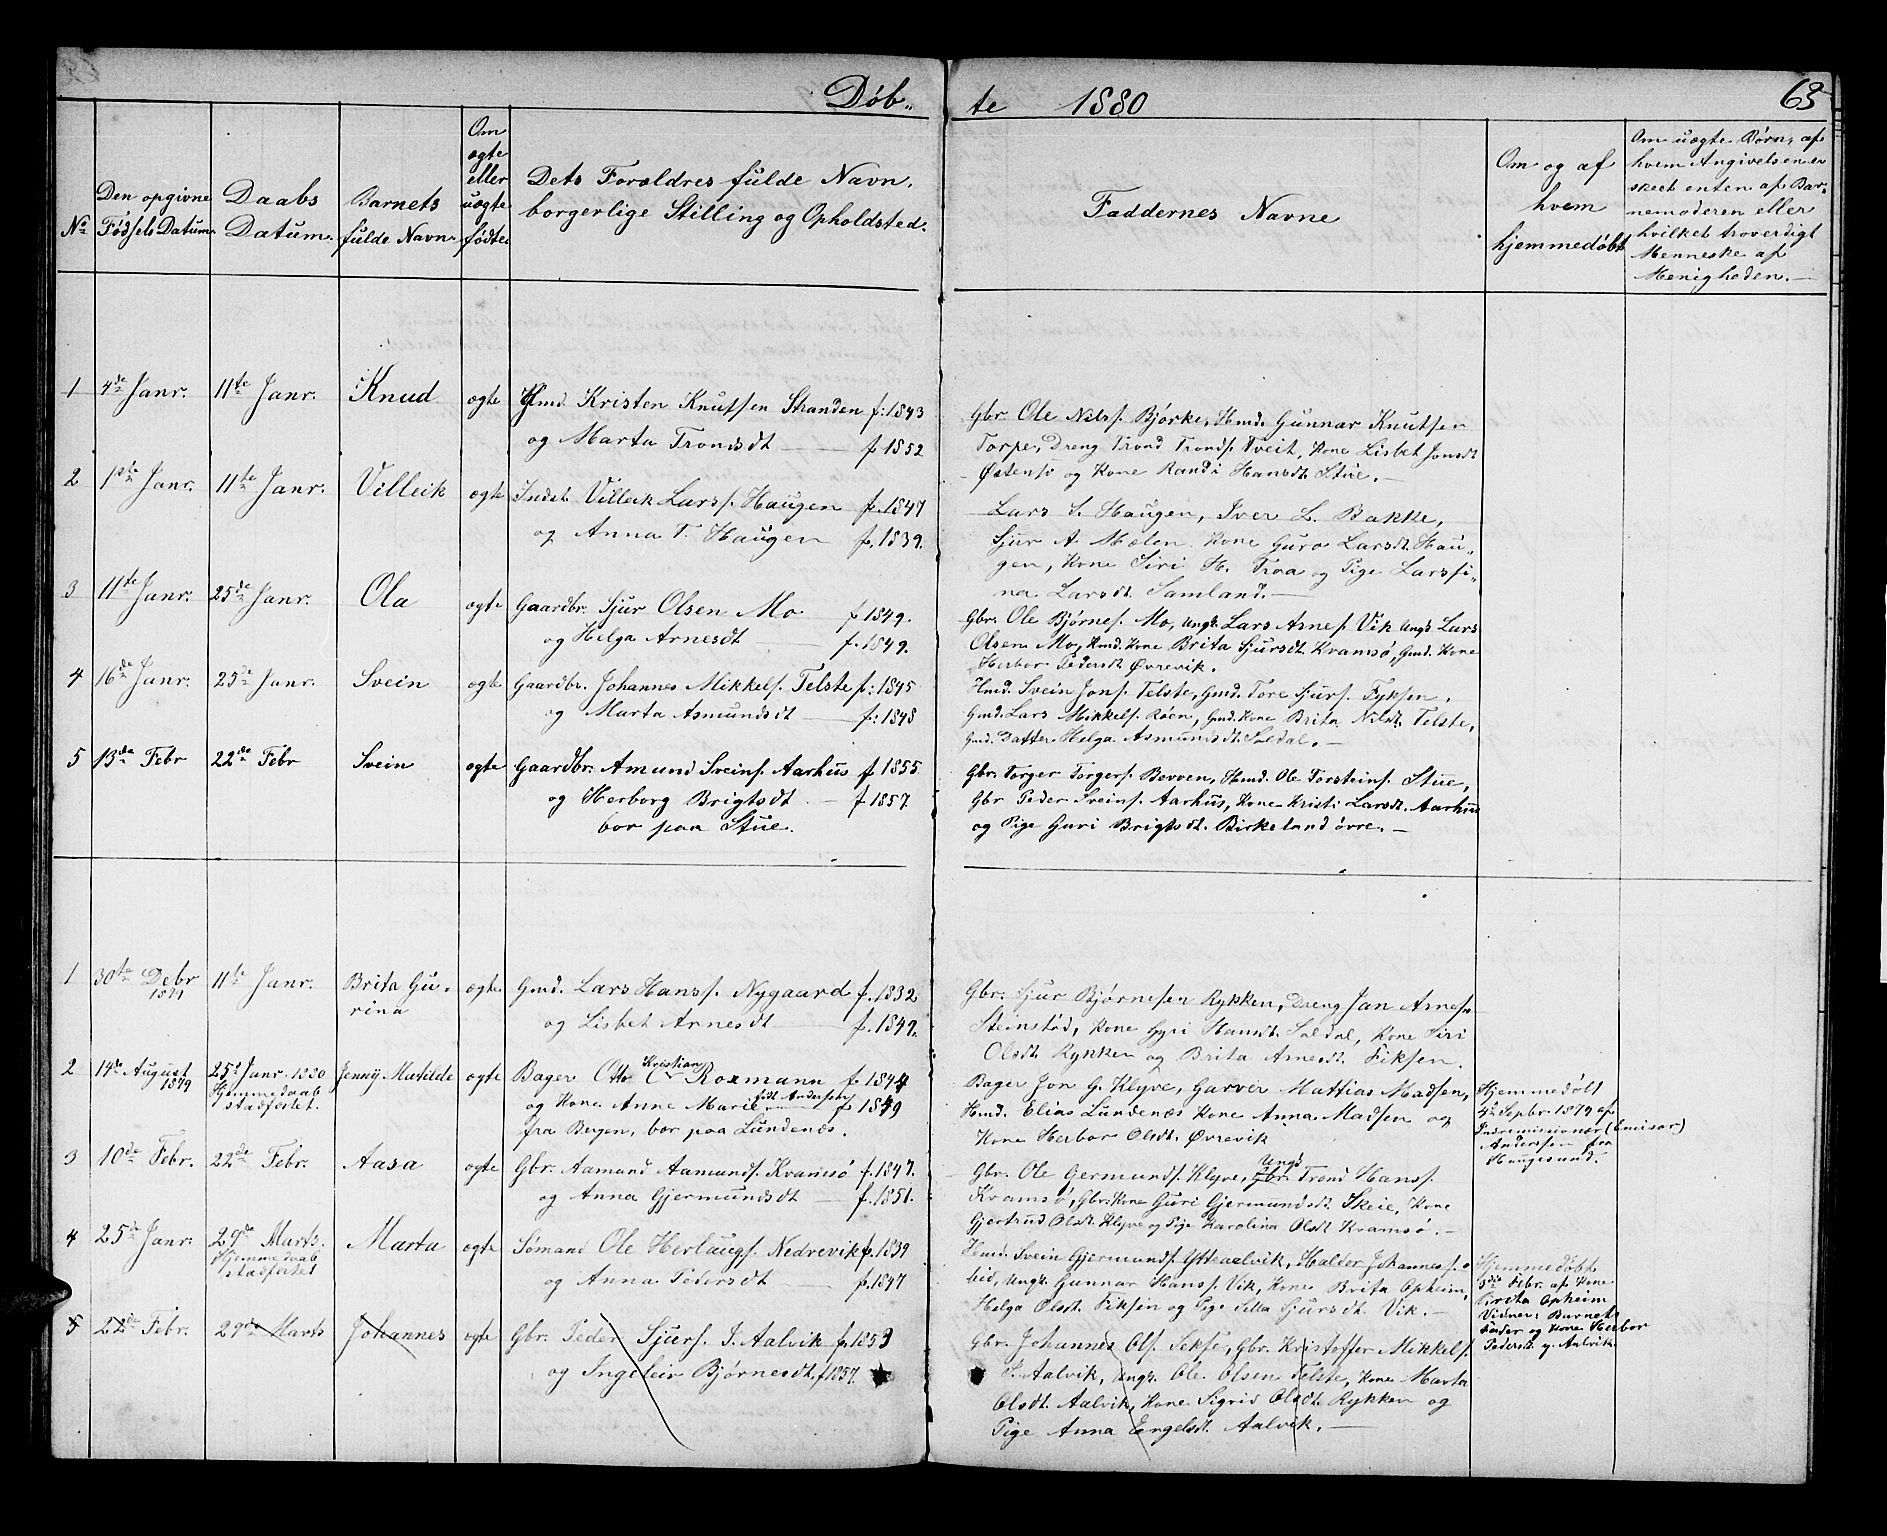 Døb„
te 1880
63
No
Den opgivne
Fødsels Datum.
Daabs
Datum.
Barnets
fulde Navn.
Om
ægte
eller
uægte
født.
Dets Forældres fulde Navn,
borgerlige Stilling og Opholdsted.
Faddernes Navne
Om og af
hvem
hjemmedøbt
Om uægte Børn, af
hvem Angivelsen er
skeet enten af Bar-
nemoderen eller
hvilket troverdigt
Menneske af
Menigheden.
1 4de Janr. 11te Janr. Knud ægte Hmd. Kristen Knutsen Stranden f: 1843
og Marta Trondsdt f. 1852
Gbr. Ole Nilss. Bjørke, Hmd. Gunnar Knutsen
Torpe, Dreng Trond Tronds. Tveit, Kone Lisbet Jonsdt
Østensø og Kone Randi Hansdt. Stue.
2 1ste Janr. 11te Janr. Villeik ægte Indst. Villeik Larss. Haugen f. 1847
og Anna T. Haugen f. 1839.
Lars S. Haugen, Iver L. Bakke,
Sjur A. Mælen Kone Guro Larsdt. Hau-
gen, Kone Siri H. Troa og Pige Larsi-
na Larsdt. Samland.
3 11te Janr. 25de Janr. Ola ægte Gaardbr. Sjur Olsen Mo f. 1849.
og Helga Arnesdt f. 1849.
Gbr. Ole Bjørnes. Mo, Ungk. Lars Arnes. Vik Ungk Lars
Olsen Mo, Hmd. Kone Brita Sjursdt. Kramsø, Gmd. Kone
Herbor Pedersdt. Øvrevik.
4 16de Janr. 25de Janr. Svein ægte Gaardbr. Johannes Mikkels. Telste f: 1845
og Marta Asmundsdt f: 1848
Hmd. Svein Jons. Telste, Gmd. Tore Sjurs. Fyksen,
Gmd. Lars Mikkels. Røen, Gmd. Kone Brita Nilsdt. Telste,
Gmd. Datter Helga Asmundsdt. Soldal.
5 13de Febr 22de Febr Svein ægte Gaardbr. Amund Sveins. Aarhus f 1855
og Herborg Brigtsdt. f 1857
bor paa Stue.
Gbr. Torger Torgers. Bevven, Hmd. Ole Torsteins. Stue,
Gbr Peder Sveins. Aarhus, Kone Kristi Larsdt. Aarhus
og Pige Guri Brigtsdt. Birkeland øvre.
1 30te Debr 11te Janr. Brita Gu- ægte Gmd. Lars Hanss. Nygaard f. 1832
1879
rina og Lisbet Arnesdt f. 1849.
Gbr. Sjur Bjørnesen Rykken, Dreng Jan Arnes.
Steinstød, Kone Gyri Hansdt. Soldal, Kone Siri
Olsdt. Rykken og Brita Arnesdt. Fiksen.
2 14de August 25de Janr. 1880 Jenny Matilde ægte Bager Otto Kristian C. Rosmann f. 1844
1879 Hjemmedaab
stadfestet.
og Kone Anne Marie født Andersen f 1849
fra Bergen, bor paa Lundenæs.
Bager Jon G. Klyve, Garver Mattias Madsen,
Hmd. Elias Lundenæs Kone Anna Madsen og
Kone Herbor Olsdt. Øvrevik
Hjemmedøbt
4de Sepbr. 1879 af
Indremissionær (Emisær)
Anderssen fra
Haugesund.
3 10de Febr. 22de Febr. Aasa ægte Gbr. Aamund Aamunds. Kvamsø f. 1847.
og Anna Gjermundsdt f. 1851.
Gbr. Ole Germunds. Klyve, Gbr. Ungk Trond Hanss.
Kramsø, Gbr. Kone Guri Gjermundsdt. Skeie, Kone
Gjertrud Olsdt. Klyve og Pige Karolina Olsdt Kvamsø.
4 25de Janr. 29de Marts. Marta ægte Sømand Ole Herlaugs. Nedrevik f. 1839
Hjemmedaab
stadfestet
og Anna Pedersdt f. 1847
Hmd. Svein Gjermunds. Ytreaalvik, Haldor Johanness. o
bid, Ungk. Gunnar Hanss. Vik, Kone Brita Opheim,
Helga Olsdt. Fiksen og Pige Silla Sjursdt. Vik.
Hjemmedøbt
5de Febr. af Kone
Brita Opheim
Vidner: Barnets
Fader og Kone Herbor
Pedersd. y. Aalvik.
5 22de Febr. 29de Marts Johannes ægte Gbr. Peder Sjurs. I. Aalvik f. 1853
og Ingeleiv Bjørnesdt. f 1857.
Gbr. Johannes Ols. Sekse, Gbr. Kristoffer Mikkels.
I. Aalvik, Ungk. Ole Olsen Telste, Kone Marta
Olsdt. Aalvik, Kone Sigrid Olsdt Rykken og
Pige Anna Engelsdt. Aalvik.